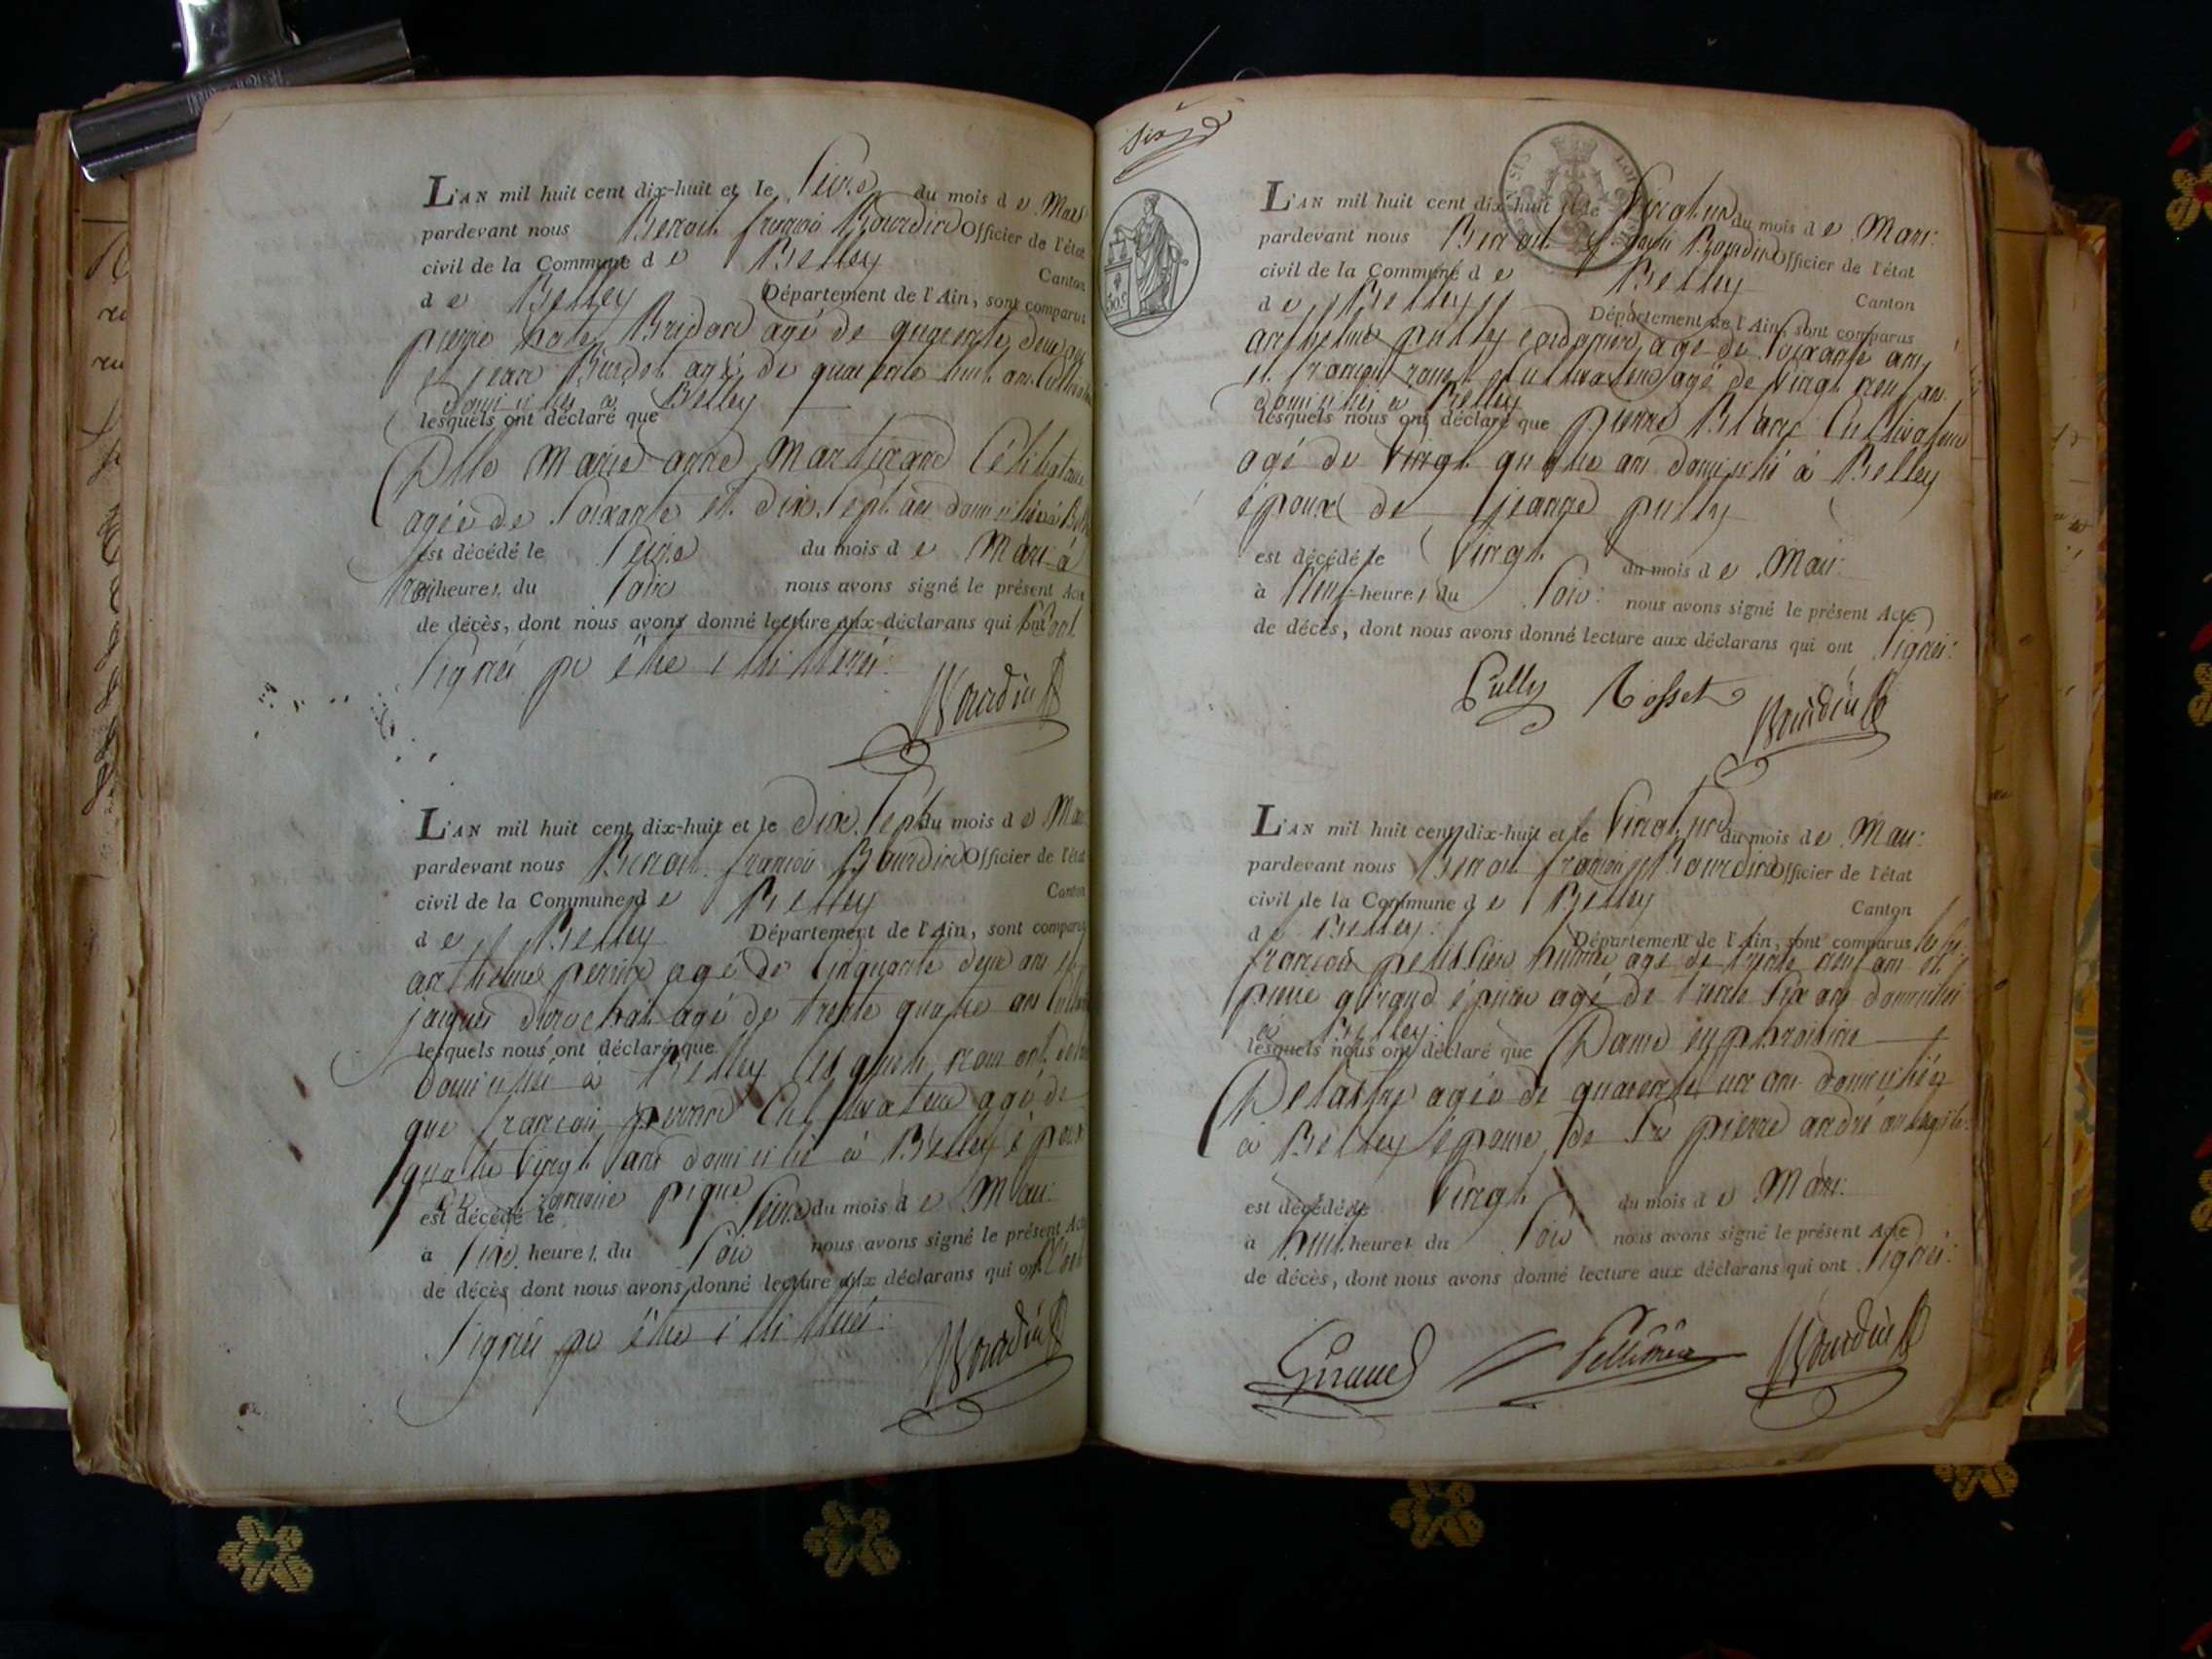 L'AN mil huit cent dix-huit et le Seize du mois de Mars
pardevant nous Benoit françois Bourdin Officier de l'état
civil de la Commune de Belley Canton
de Belley Département de l'Ain, sont comparus
pierre Bridon agé de quarente deux ans
et jean Burdet agé de quarente huit ans Cultivateurs
domiciliés à Belley
lesquels ont déclaré que
Dlle Marie anne Martinand Célibataire
agée de Soixante et dix Sept ans domiciliée à
est décédé le Seize du mois de Mars à
heures du Soir nous avons signé le présent Acte
de décès, dont nous avons donné lecture aux déclarans qui n'ont
Signés pr être illitterés.
Bourdin
L'AN mil huit cent dix-huit et le dix Sept du mois de Mars
pardevant nous Benoit françois Bourdin Officier de l'état
civil de la Commune de Belley Canton
de Belley Département de l'Ain, sont comparus
anthelme perrin agé de Cinquante deux ans et
jacques agé de trente quatre ans
lesquels nous ont déclaré que
domiciliés à Belley lesquels nous ont
que françois Cultivateur agé de
quatre Vingt ans domicilié à Belley époux
de pique
est décédé le Seize du mois de Mars
à heures du Soir nous avons signé le présent Acte
de décès dont nous avons donné lecture aux déclarans qui ont
Signés pr être illitterés.
Bourdin
Six
50 c
L'AN mil huit cent dix-huit et le Vingt un du mois de Mars
pardevant nous Benoit françois Bourdin Officier de l'état
civil de la Commune de Belley
de Belley Canton
Département de l'Ain, sont comparus
anthelme pully agé de Soixante ans
et françois Cultivateur agé de Vingt neuf ans
domiciliés à Belley
lesquels nous ont déclaré que pierre Blanc Cultivateur
agé de Vingt quatre ans domicilié à Belley
époux de jeanne pully
est décédé le Vingt du mois de Mars
à Neuf heures du Soir nous avons signé le présent Acte
de décès, dont nous avons donné lecture aux déclarans qui ont Signés.
Pully Rosset Bourdin
L'AN mil huit cent dix-huit et le Vingt un du mois de Mars
pardevant nous Benoit françois Bourdin Officier de l'état
civil de la Commune de Belley Canton
de Belley Département de l'Ain, sont comparus
françois agé de trente neuf ans et
pierre giraud épicier agé de trente Six ans domiciliés
à Belley
lesquels nous ont déclaré que Dame euphrosine
Delastre agée de quarente un ans domiciliée
à Belley épouse de Sr pierre andré
est décédé le Vingt du mois de Mars
à huit heures du Soir nous avons signé le présent Acte
de décès, dont nous avons donné lecture aux déclarans qui ont Signés.
Giraud Bourdin